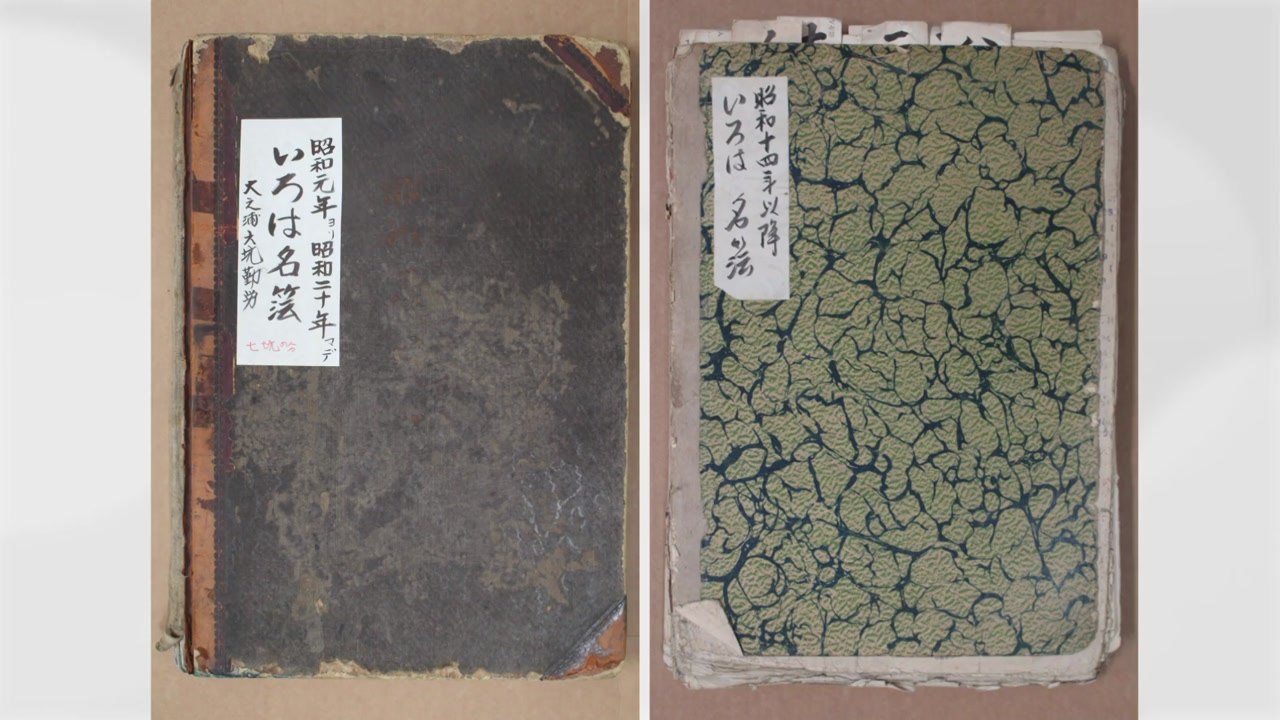 昭和元年ヨリ昭和二十年マデ
いろは名簿
大之浦大坑勤労
七坑の分
昭和十四年以降
いろは 名簿